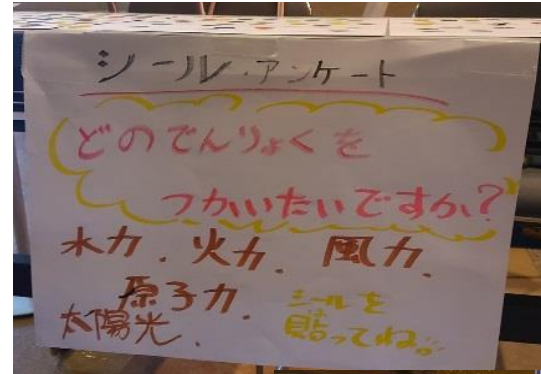 シール・アンケート
どのでんりょくを
つかいたいですか?
水力.火力.風力.
原子力.
太陽光.
シールを
貼ってね